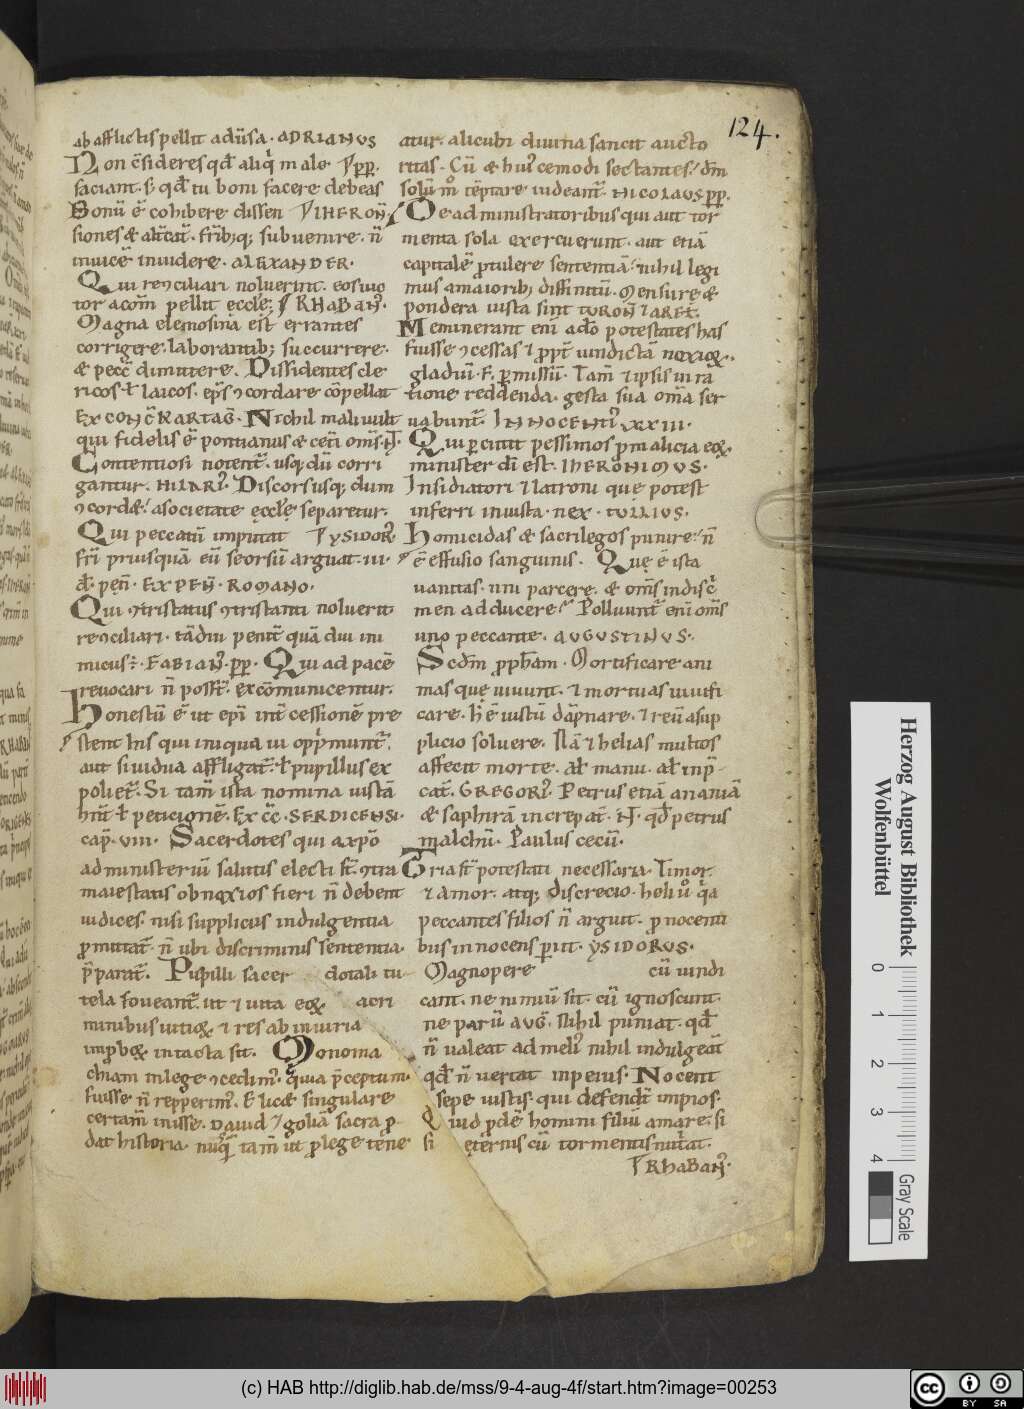 124.
ab afflictis pellit aduīsa · ADRIANVS
Non c̄sideres qđ aliq̇ male
faciant · s; qđ tu boni facere debeas
Bonū ē cohibere dissen IHERON̄
siones & alt̄cat̄. fr̄ib;q; subuenire · n̄
inuicē inuidere · ALEXANDER ·
Qui reɔciliari noluerint · eos uio
tor acōm pellit eccłę; RHABAN̄
Magna elemosina est errantes
corrigere · laborantib; succurrere ·
& pecc̄ dimittere · Dissidentes cle
ricos · ł laicos · ep̄s ɔcordare cōpellat
EX CONC̄ KARTAG̅ · Nichil mali uult
qui fidelis ē pontianus & cet̄i om̄s · H̄ ·
Contentiosi notent̄ · usq; dū corri
gantur · HILARI᾿ · Discors usq; dum
ɔcordæ asocietate ęccłę separetur ·
Qui peccatū imputat YSIDOR᾿
fr̄i priusquā eū seorsū arguat · III ·
d̄ · pen̄ · EX PEN̄ · ROMANO ·
Qui ɔtristatus ɔtristanti noluerit
reɔciliari · tādiu penit̄ quā diu ini
micus · FABIAN᾿ · pp̄ · Qui ad pacē
reuocari n̄ posst̄ · excōmunicentur ·
Honestū ē ut ep̄i int̄cessionē pre
stent his qui iniqua ui opp̄munt̄
aut si uidua affligat̄ · ł pupillus ex
poliet̄ · Si tam̄ ista nomina iustā
hn̄t ł peticionē · EX C̄C̄ · SERDICENSI ·
cap̄ · VIII · Sacerdotes qui axp̄o
ad ministeriū salutis electi st̄ · ɔtra
maiestatis obnoxios fieri n̄ debent
iudices · nisi supplicus indulgentia
p̄mittat̄ · n̄ ubi discriminis sententia
p̄parat̄ · Pupilli sacer dotali tu
tela foueant̄ · ut & uita eoꝝ acri
minibus uitioꝝ & res ab iniuria
improboꝝ intacta sit · Monoma
chiam in lege ɔcedim᾿ · quia p̄ceptum
fuisse n̄ repperim᾿ · & licæ singulare
certam̄ inisse · DAUID & goliā sacra p̄
dat historia · nuq̄ tam̄ ut p lege tene
atur · alicubi diuina sancit aucto
ritas · Cū & hui᾿cemodi sectantes · dm̄
solū m̊ tēptare uideant̄ · NICOLAUS pp̄ ·
De administratoribus qui aut tor
menta sola exercuerunt · aut etiā
capitalē p̄tulere sententiā · nihil legi
mus amaiorib; diffinitū · Mensure &
pondera iusta sint TURON̄ & ARET̄
Meminerant eni᾿ ado potestates has
fuisse ɔcessas & p̄pt̄ uindictā noxioꝝ ·
gladiū · E · p̄missū · Tam̄ & ipsis in ra
tione reddenda · gesta sua om̄a ser
uabunt̄ · INNOCENTI᾿ XXIII ·
Qui percutit pessimos p malicia eoꝝ
minister dī est · IHERONIMUS ·
Insidiatori & latroni que potest
inferri iniusta nex · TULLIUS ·
Homicidas & sacrilegos punire · n̄
ē effusio sanguinis · Quę ē ista
uanitas · uni parcere · & om̄s indisc̄
men adducere · Polluunt̄ eni᾿ om̄s
uno peccante · AUGUSTINUS ·
Scdm̄ pphām · Mortificare ani
mas quę uiuunt · & mortuas uiuifi
care · h̄ ē iustū dāpnare · & reū asup
plicio soluere · Nā & helias multos
affecit morte · at manu · at inp̄
cat̄ · GREGORI᾿ · Petrus etiā ananiā
& saphirā increpat̄ · H̄ · qđ petrus
malchū · Paulus cecū ·
Tria st̄ potestati necessaria · Timor ·
& amor · atq; discrecio · heli u᾿ q̇a
peccantes filios n̄ arguit · p nocenti
bus innocens p̄iit · YSIDORUS ·
Magnopere cū uindi
cant · ne nimiū sit · cū ignoscunt ·
ne parū AUG̅ · Nihil puniat · qđ
n̄ ualeat ad meli᾿ nihil indulgeat
qđ n̄ uertat in peius · Nocent
sepe iustis · qui defendt̄ impios ·
Quid pdē homini filiū amare · si
si ęternis cū tormentis nut̄at ·
RHABAN᾿ ·
Herzog August Bibliothek
Wolfenbüttel
0 1 2 3 4
Gray Scale
(c) HAB http://diglib.hab.de/mss/9-4-aug-4f/start.htm?image=00253
cc BY SA